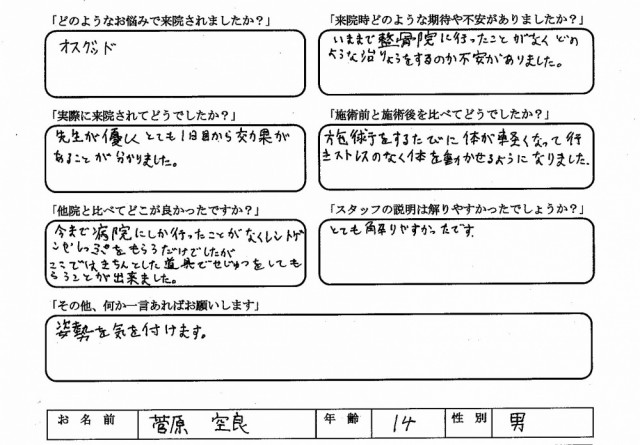 「どのようなお悩みで来院されましたか？」
オスグッド
「来院時どのような期待や不安がありましたか？」
いままで整骨院に行ったことがなくどの
ような治りょうをするのか不安がありました。
「実際に来院されてどうでしたか？」
先生が優しくとても1日目から効果が
あることが分かりました。
「施術前と施術後を比べてどうでしたか？」
施術をするたびに体が軽くなって行
きストレスのなく体を動かせるようになりました。
「他院と比べてどこが良かったですか？」
今まで病院にしか行ったことがなくレントゲ
ンとしっぷをもらうだけでしたが
ここではきちんとした道具でせじゅつをしても
らうことが出来ました。
「スタッフの説明は解りやすかったでしょうか？」
とても解りやすかったです。
「その他、何か一言あればお願いします」
姿勢を気を付けます。
お名前 菅原 空良 年齢 14 性別 男